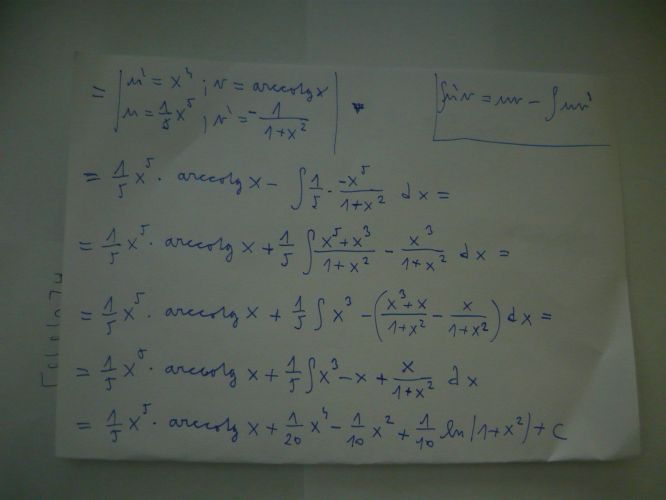 = | u' = x⁴ ; v = arccotg x |
| u = 1/5 x⁵ ; v' = - 1/(1+x²) |
∫u'v = uv - ∫uv'
= 1/5 x⁵ · arccotg x - ∫ 1/5 · -x⁵/(1+x²) dx =
= 1/5 x⁵ · arccotg x + 1/5 ∫ (x⁵+x³)/(1+x²) - x³/(1+x²) dx =
= 1/5 x⁵ · arccotg x + 1/5 ∫ x³ - ( (x³+x)/(1+x²) - x/(1+x²) ) dx =
= 1/5 x⁵ · arccotg x + 1/5 ∫ x³ - x + x/(1+x²) dx
= 1/5 x⁵ · arccotg x + 1/20 x⁴ - 1/10 x² + 1/10 ln|1+x²| + C